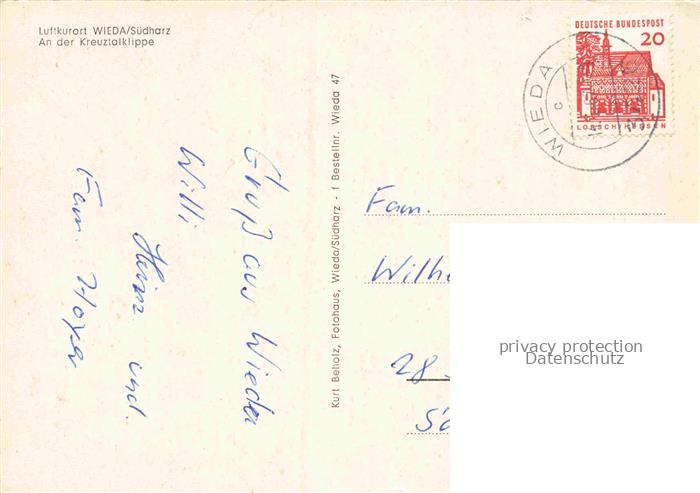 Luftkurort WIEDA/Südharz
An der Kreuztalklippe
DEUTSCHE BUNDESPOST
20
LORSCH/HESSEN
WIEDA
c
Kurt Beholz, Fotohaus, Wieda/Südharz - f Bestellnr. Wieda 47
Gruß aus Wieda
Willi
Heinz und
Fam. Hoyer
Fam.
Wilhe
28
privacy protection
Datenschutz